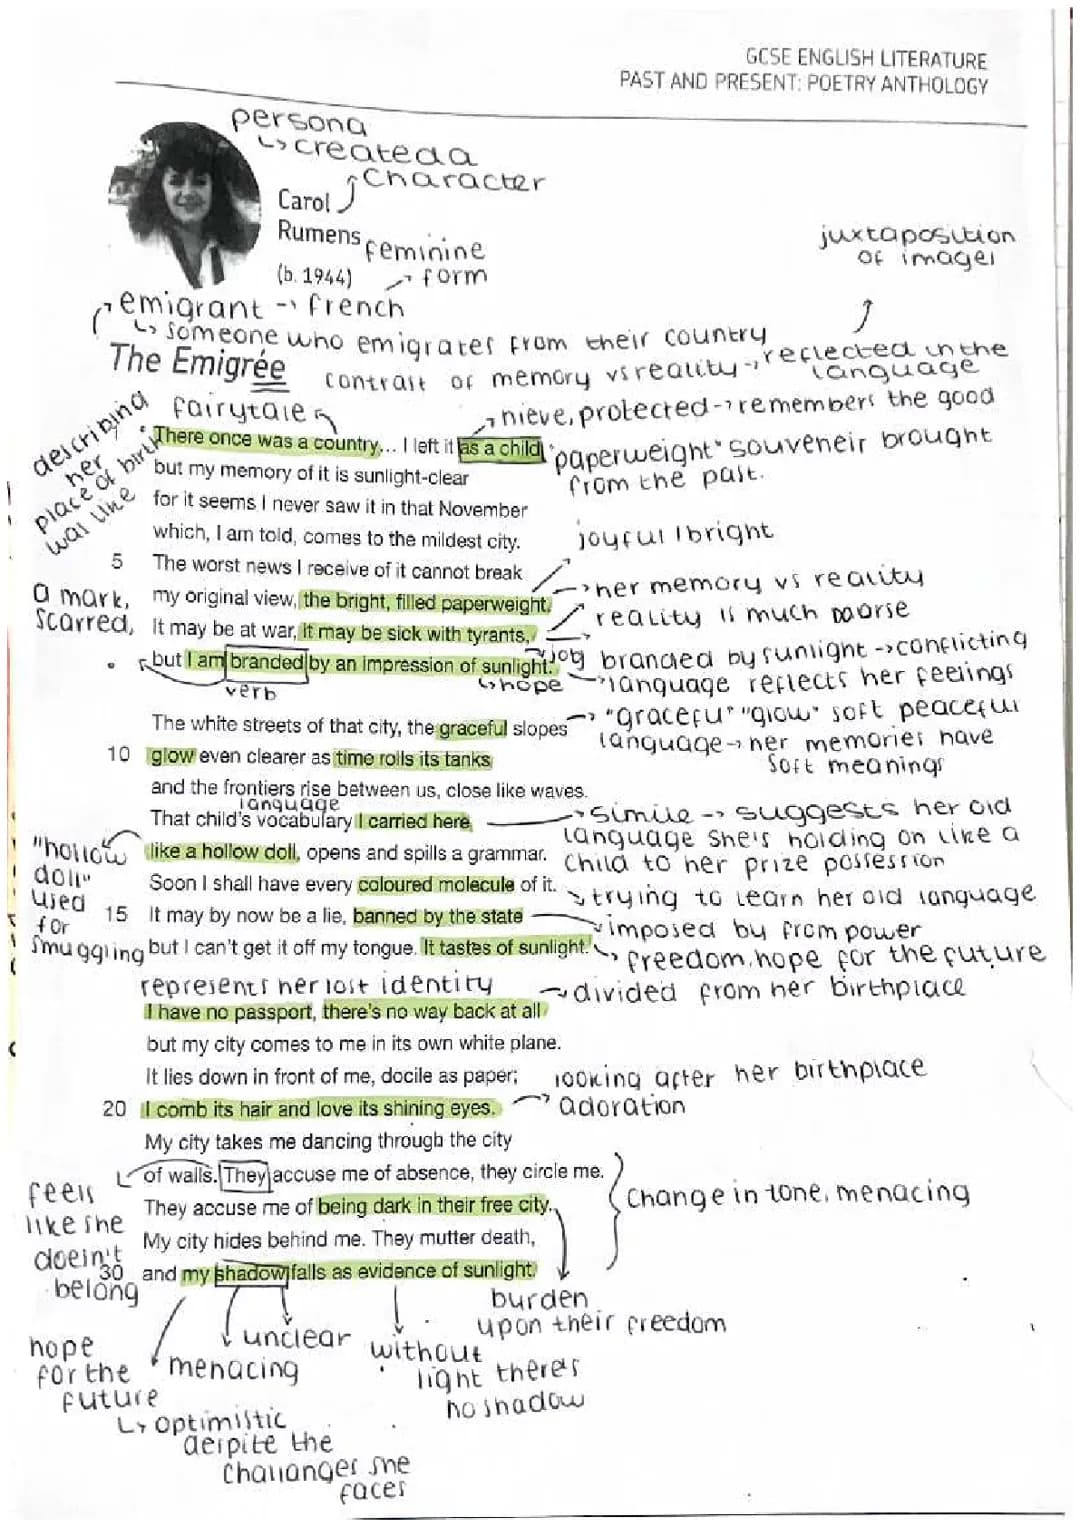 GCSE ENGLISH LITERATURE
PAST AND PRESENT: POETRY ANTHOLOGY
persona
↳ created a
character
Carol
Rumens
(b. 1944)
feminine
→ form
juxtaposition
of images
emigrant → french
↳ someone who emigrates from their country
The Emigrée
contrast of memory vs reality → reflected in the
language
fairytale
nieve, protected → remembers the good
describing
her
place of birth
was like
There once was a country... I left it as a child
"paperweight" souveneir brought
from the past.
but my memory of it is sunlight-clear
for it seems I never saw it in that November
which, I am told, comes to the mildest city.
joyful / bright
5 The worst news I receive of it cannot break
→ her memory vs reality
my original view, the bright, filled paperweight.
reality is much worse
a mark,
scarred,
It may be at war, it may be sick with tyrants,
but I am branded by an impression of sunlight.
verb
joy
↳ hope
branded by sunlight → conflicting
language reflects her feelings
The white streets of that city, the graceful slopes
→ "graceful" "glow" soft peaceful
language → her memories have
soft meanings
10 glow even clearer as time rolls its tanks
and the frontiers rise between us, close like waves.
language
That child's vocabulary I carried here
→ simile → suggests her old
language she's holding on like a
child to her prize possession
"hollow
doll"
used
for
smuggling
like a hollow doll, opens and spills a grammar.
Soon I shall have every coloured molecule of it.
→ trying to learn her old language
15 It may by now be a lie, banned by the state
imposed by from power
but I can't get it off my tongue. It tastes of sunlight.
↳ freedom, hope for the future
represents her lost identity
→ divided from her birthplace
I have no passport, there's no way back at all
but my city comes to me in its own white plane.
It lies down in front of me, docile as paper;
looking after her birthplace
20 I comb its hair and love its shining eyes.
→ adoration
My city takes me dancing through the city
of walls. They accuse me of absence, they circle me.
They accuse me of being dark in their free city.
Change in tone, menacing
feels
like she
doesn't
belong
My city hides behind me. They mutter death,
30 and my shadow falls as evidence of sunlight.
burden
upon their freedom
unclear
menacing
without
light theres
no shadow
hope
for the
future
↳ optimistic
despite the
challanges she
faces